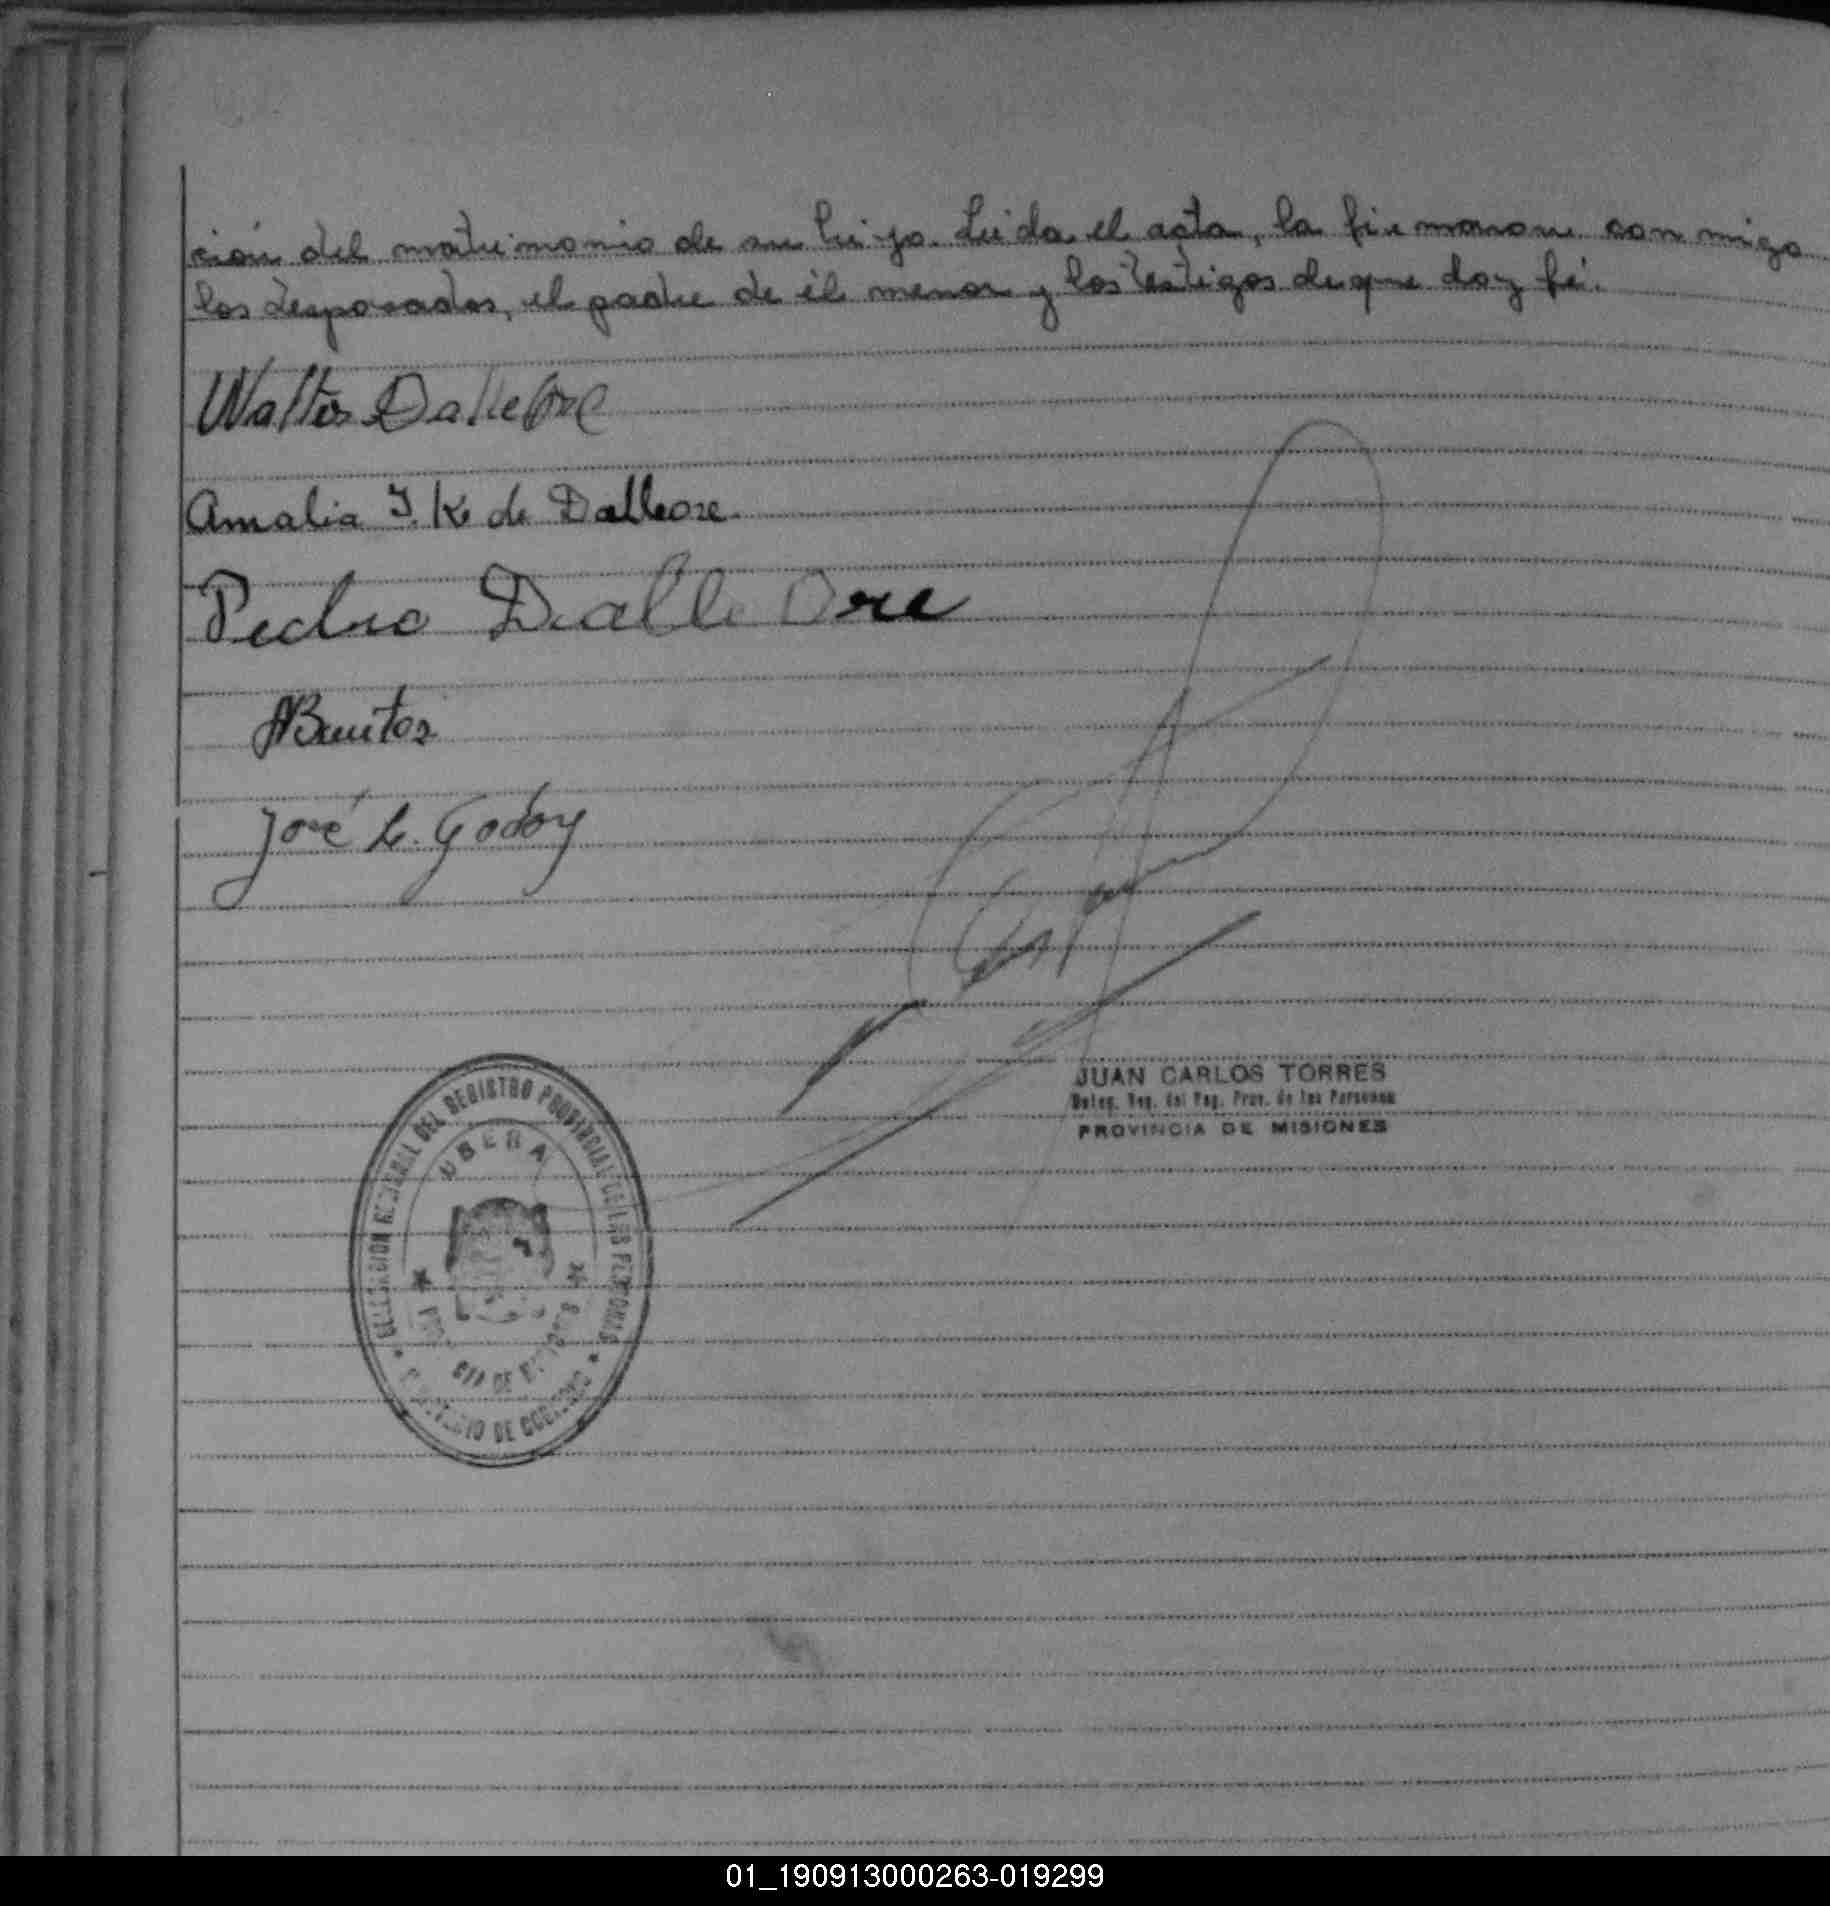 ción del matrimonio de su hijo. Leida el acta, la firmaron conmigo
los desposados, el padre de él menor y los testigos de que doy fé.
Walter Dalleore
Amalia I. K. de Dalleore.
Pedro Dalle Ore
José L. Godoy
JUAN CARLOS TORRES
Deleg. Reg. del Reg. Prov. de las Personas
PROVINCIA DE MISIONES
DELEGACION REGIONAL DEL REGISTRO PROVINCIAL DE LAS PERSONAS
OBERA
MINISTERIO DE GOBIERNO
01_190913000263-019299